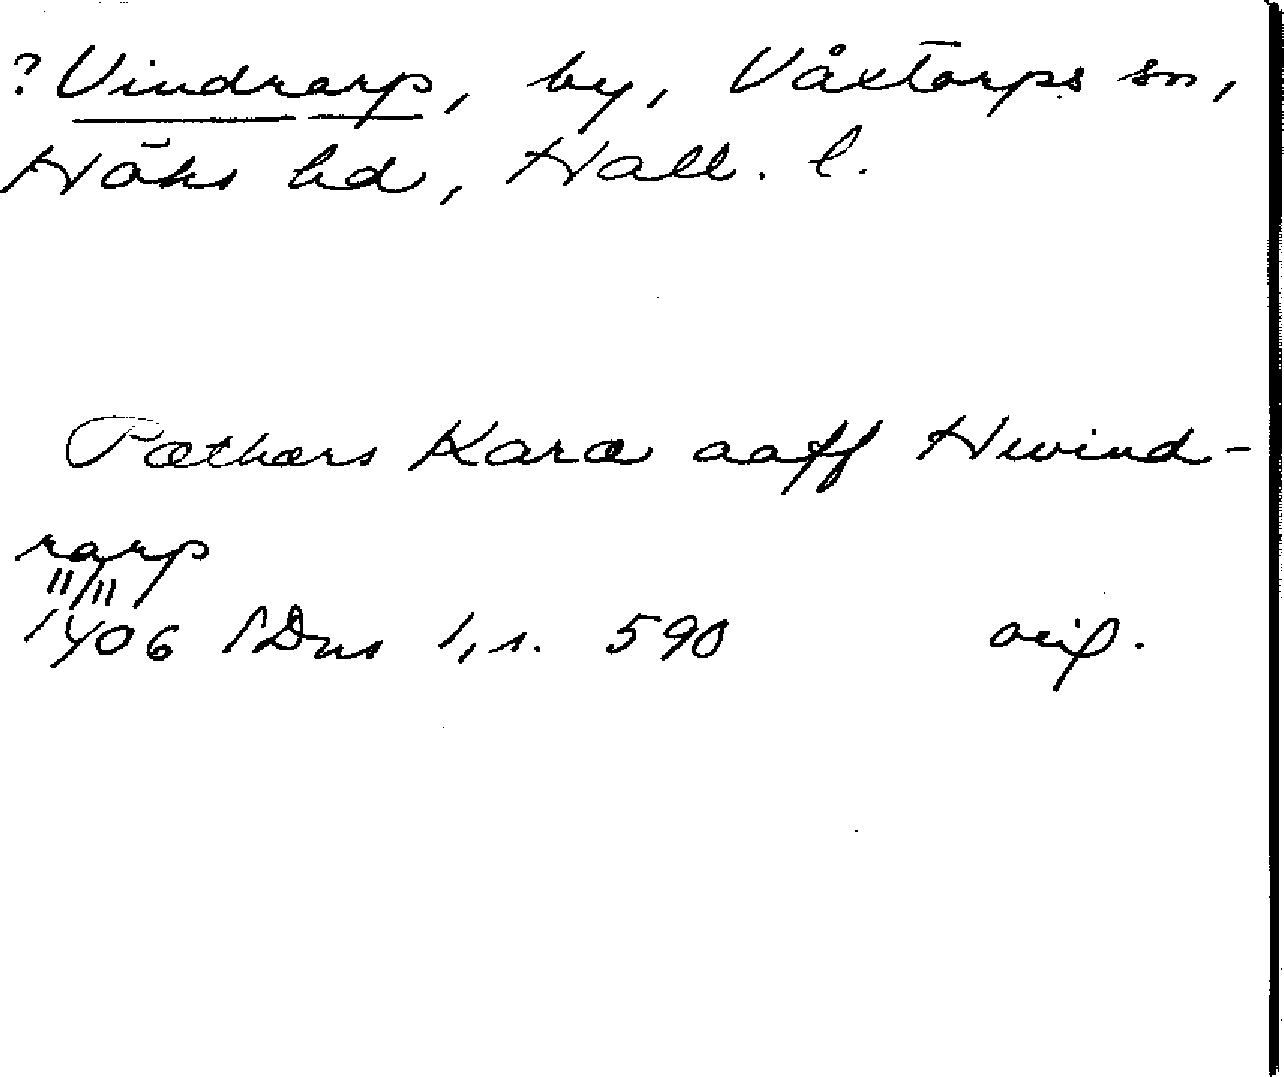 ?Vindrarp, by, Våxtorps sn,
Höks hd, Hall. l.
Pæthers Karæ aaff Hwind-
rarp
11/11
1406 SDns 1, s. 590 orig.